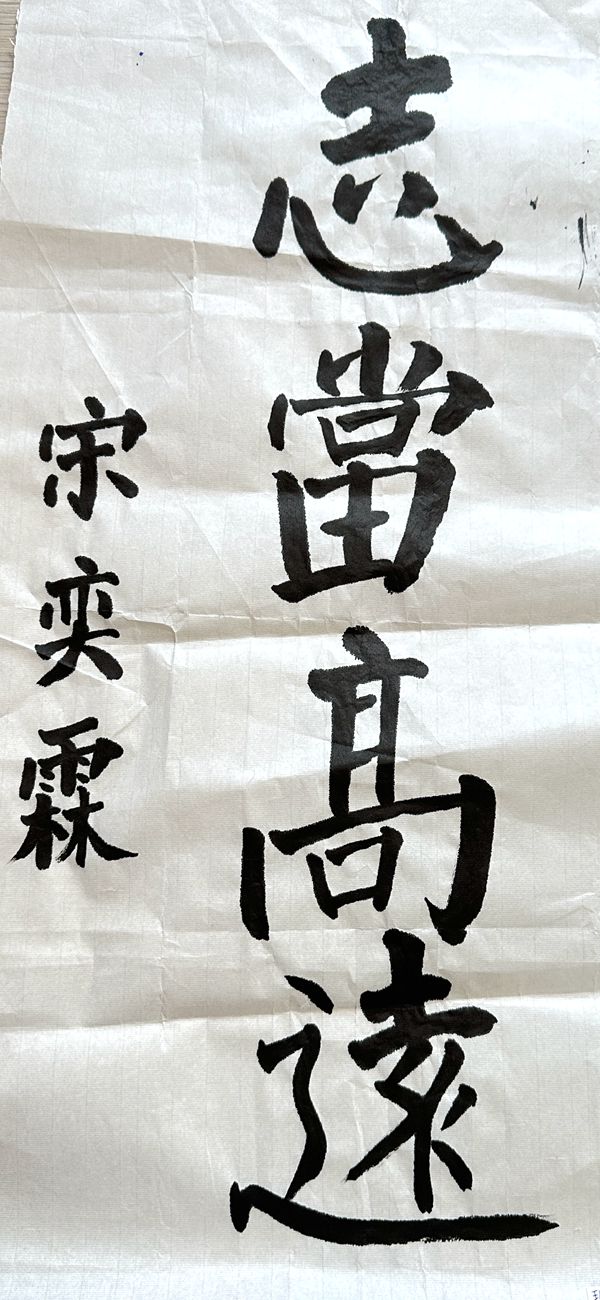 志當髙遠
宋奕霖